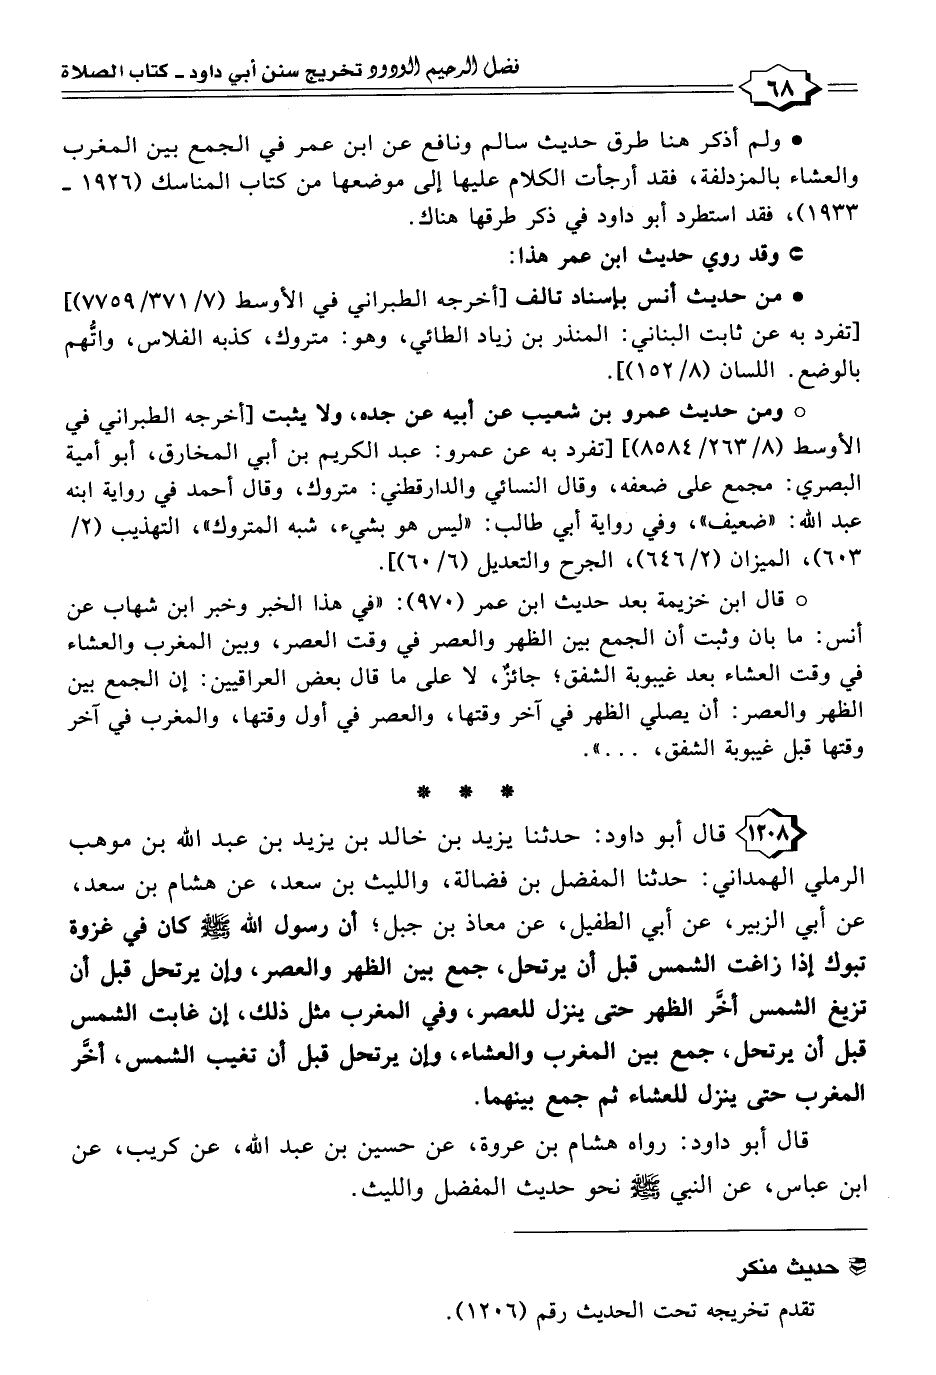 ٦٨
فضل الرحيم الودود تخريج سنن أبي داود ـ كتاب الصلاة
• ولم أذكر هنا طرق حديث سالم ونافع عن ابن عمر في الجمع بين المغرب
والعشاء بالمزدلفة، فقد أرجأت الكلام عليها إلى موضعها من كتاب المناسك (١٩٢٦ ـ
١٩٣٣)، فقد استطرد أبو داود في ذكر طرقها هناك.
وقد روي حديث ابن عمر هذا:
• من حديث أنس بإسناد تالف [أخرجه الطبراني في الأوسط (٧/ ٣٧١/ ٧٧٥٩)]
[تفرد به عن ثابت البناني: المنذر بن زياد الطائي، وهو: متروك، كذبه الفلاس، واتُّهم
بالوضع. اللسان (٨/ ١٥٢)].
○ ومن حديث عمرو بن شعيب عن أبيه عن جده، ولا يثبت [أخرجه الطبراني في
الأوسط (٨/ ٢٦٣/ ٨٥٨٤)] [تفرد به عن عمرو: عبد الكريم بن أبي المخارق، أبو أمية
البصري: مجمع على ضعفه، وقال النسائي والدارقطني: متروك، وقال أحمد في رواية ابنه
عبد الله: «ضعيف»، وفي رواية أبي طالب: «ليس هو بشيء، شبه المتروك»، التهذيب (٢/
٦٠٣)، الميزان (٢/ ٦٤٦)، الجرح والتعديل (٦/ ٦٠)].
○ قال ابن خزيمة بعد حديث ابن عمر (٩٧٠): «في هذا الخبر وخبر ابن شهاب عن
أنس: ما بان وثبت أن الجمع بين الظهر والعصر في وقت العصر، وبين المغرب والعشاء
في وقت العشاء بعد غيبوبة الشفق؛ جائزٌ، لا على ما قال بعض العراقيين: إن الجمع بين
الظهر والعصر: أن يصلي الظهر في آخر وقتها، والعصر في أول وقتها، والمغرب في آخر
وقتها قبل غيبوبة الشفق، ...».
* * *
١٢٠٨ قال أبو داود: حدثنا يزيد بن خالد بن يزيد بن عبد الله بن موهب
الرملي الهمداني: حدثنا المفضل بن فضالة، والليث بن سعد، عن هشام بن سعد،
عن أبي الزبير، عن أبي الطفيل، عن معاذ بن جبل؛ أن رسول الله ﷺ كان في غزوة
تبوك إذا زاغت الشمس قبل أن يرتحل، جمع بين الظهر والعصر، وإن يرتحل قبل أن
تزيغ الشمس أخَّر الظهر حتى ينزل للعصر، وفي المغرب مثل ذلك، إن غابت الشمس
قبل أن يرتحل، جمع بين المغرب والعشاء، وإن يرتحل قبل أن تغيب الشمس، أخَّر
المغرب حتى ينزل للعشاء ثم جمع بينهما.
قال أبو داود: رواه هشام بن عروة، عن حسين بن عبد الله، عن كريب، عن
ابن عباس، عن النبي ﷺ نحو حديث المفضل والليث.
حديث منكر
تقدم تخريجه تحت الحديث رقم (١٢٠٦).